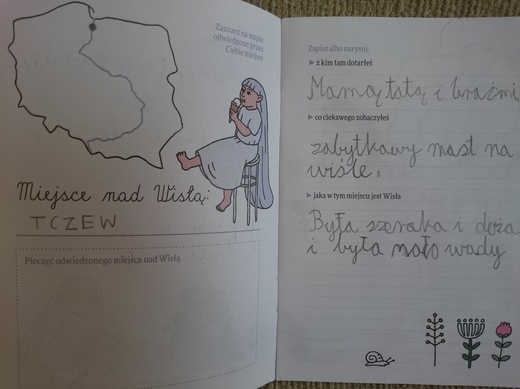 Zaznacz na mapie
odwiedzone przez
Ciebie miejsce
Miejsce nad Wisłą:
TCZEW
Pieczęć odwiedzonego miejsca nad Wisłą
Zapisz albo narysuj:
▶ z kim tam dotarłeś
Mamą tatą i braćmi
▶ co ciekawego zobaczyłeś
zabytkowy most na
wiśle.
▶ jaka w tym miejscu jest Wisła
Była szeroka i duża
i była mało wady